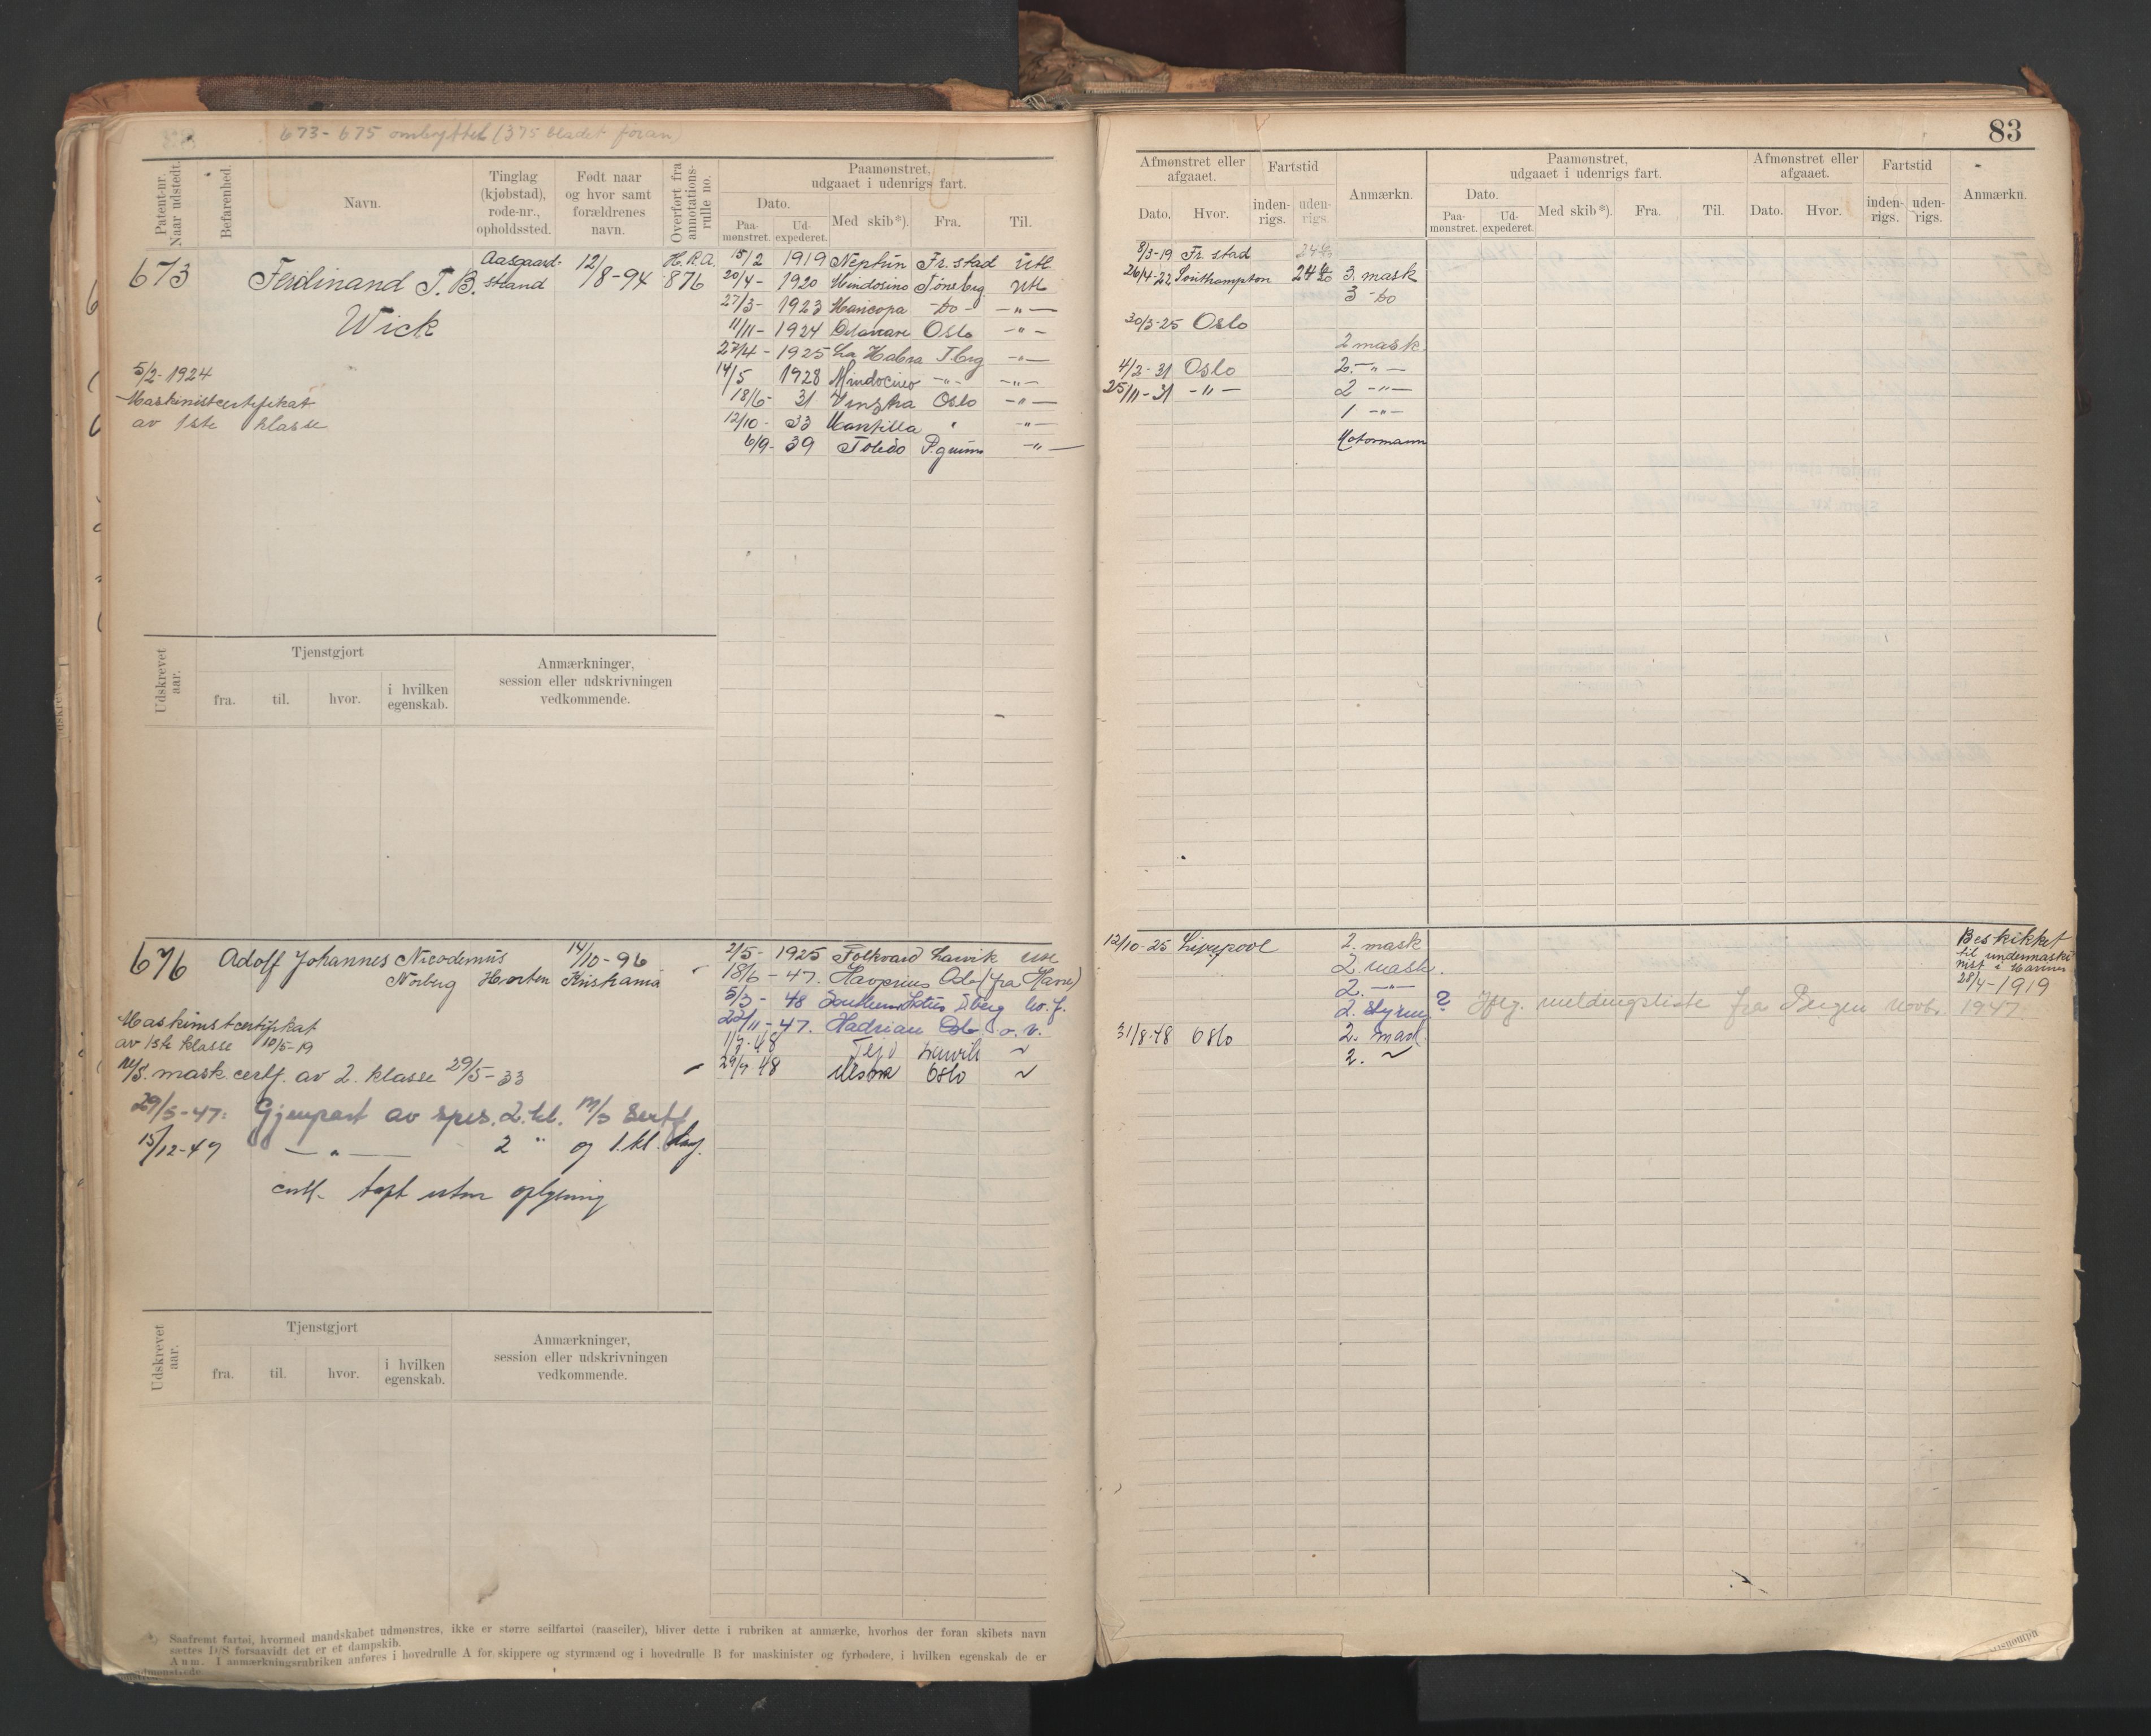 673-675 ombyttet (375 bladet foran)
83
Patent-nr. Naar udstedt.
Befarenhed.
Navn.
Tinglag (kjøbstad), rode-nr., opholdssted.
Født naar og hvor samt forældrenes navn.
Overført fra annotations-rulle no.
Paamønstret, udgaaet i udenrigs fart.
Dato.
Paa-mønstret.
Ud-expederet.
Med skib*).
Fra.
Til.
Afmønstret eller afgaaet.
Dato.
Hvor.
Fartstid
inden-rigs.
uden-rigs.
Anmærkn.
Paamønstret, udgaaet i udenrigs fart.
Dato.
Paa-mønstret.
Ud-expederet.
Med skib*).
Fra.
Til.
Afmønstret eller afgaaet.
Dato.
Hvor.
Fartstid
inden-rigs.
uden-rigs.
Anmærkn.
673 Ferdinand T. B. Wick
Aasgaard-
12/8-94
H.R.A. 876
5/2-1924
Maskinistcertifikat
av 1ste klasse
15/2 1919 Neptun Fr.stad Utl.
20/4- 1920 Mindosino Tönsberg Utl
27/3- 1923 Maricopa -do- -"-
11/11- 1924 Oslo -"-
27/4- 1925 La Habra Tbrg -"-
14/5 1928 Mindocino -"- -"-
18/6- 31 Oslo -"-
12/10- 33 Mantilla " -"-
6/9- 39 Toledo P.grunn -"-
8/3-19 Fr. stad
26/4-22 Southampton 3. mask
3 -do
30/3-25 Oslo
2 mask.
4/2-31 Oslo 2.-"-
25/11-31 -"- 2 -"-
1 -"-
Motormann
Udskrevet aar.
Tjenstgjort
fra.
til.
hvor.
i hvilken egenskab.
Anmærkninger, session eller udskrivningen vedkommende.
676 Adolf Johannes Nicodemus
Norberg Horten
14/10-96
Kristiania
Maskinistcertifikat
av 1ste klasse 10/5-19
M/S. mask. certf. av 2. klasse 29/5-33
29/5-47: Gjenpart av spes. 2. kl. M/S Sertf.
15/12-47 -"- 2 " og 1. kl. damp.
certf. tapt uten oplysning
2/5- 1925 Folkvard Larvik
18/6- 47. Oslo (fra Havre)
5/3- 48 Southern Lotus
22/11-47. Hadrian Oslo o. v.
1/7.48 Tejo Larvik ~
29/9 48 Oslo ~
12/10-25 Liverpool 2. mask
2 mask.
2. -"-
2. Styrm. ? Iflg. meldingsliste fra Bergen Novbr. 1947.
31/8.48 Oslo 2. mask.
2. ~
Beskikket
til undermaski
nist i Marinen
28/4-1919
Udskrevet aar.
Tjenstgjort
fra.
til.
hvor.
i hvilken egenskab.
Anmærkninger, session eller udskrivningen vedkommende.
*) Saafremt fartøi, hvormed mandskabet udmønstres, ikke er større seilfartøi (raaseiler), bliver dette i rubriken at anmærke, hvorhos der foran skibets navn
sættes D/S forsaavidt det er et dampskib.
Anm. I anmærkningsrubriken anføres i hovedrulle A for skippere og styrmænd og i hovedrulle B for maskinister og fyrbødere, i hvilken egenskab de er